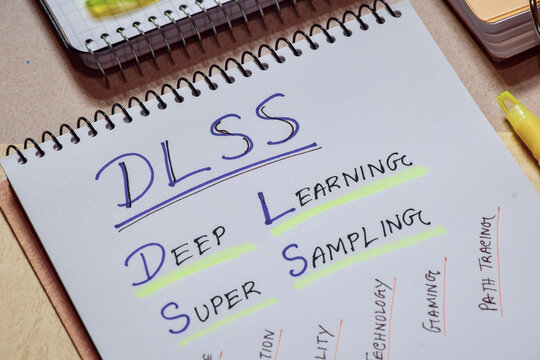 DLSS
DEEP LEARNING
SUPER SAMPLING
TECHNOLOGY
GAMING
PATH TRACING